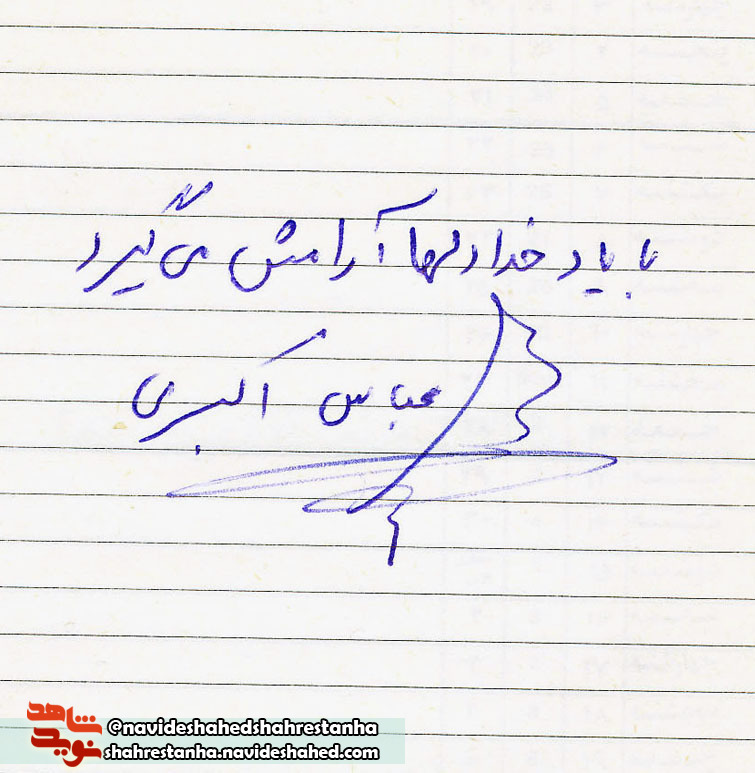 با یاد خدا دلها آرامش می‌گیرد
عباس اکبری
شاهد
نوید
@navideshahedshahrestanha
shahrestanha.navideshahed.com